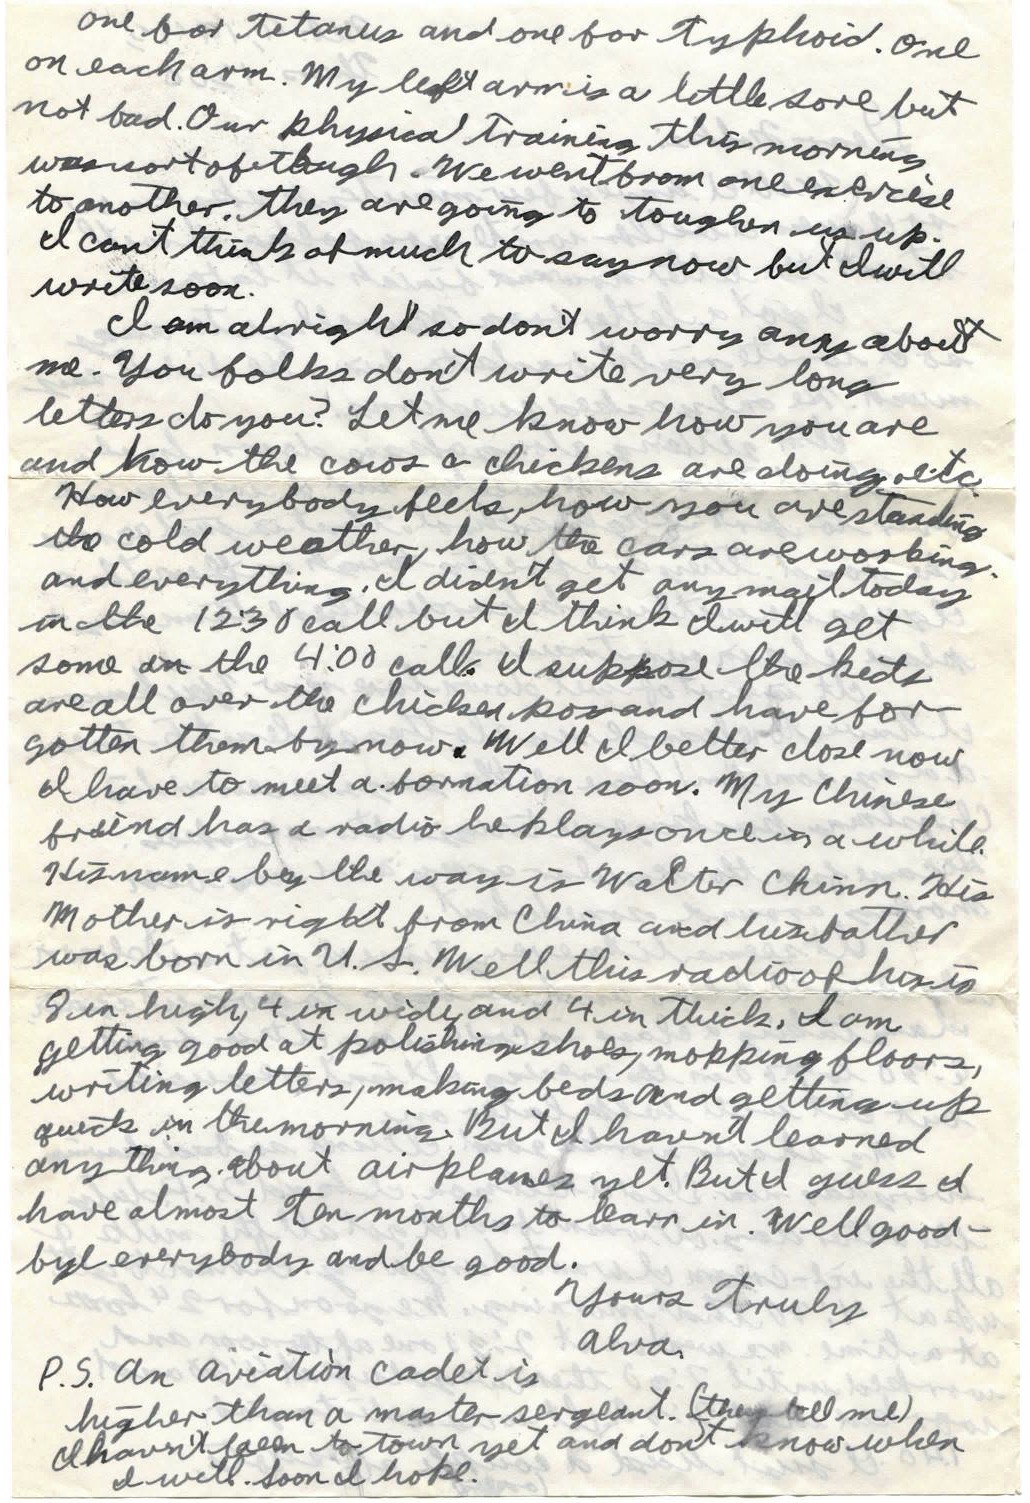 one for Tetanus and one for Typhoid. One
on each arm. My left arm is a little sore but
not bad. Our physical Training this morning
was sort of tough. We went from one exercise
to another. They are going to toughen us up.
I can't think of much to say now but I will
write soon.
I am alright so don't worry any about
me. You folks don't write very long
letters do you? Let me know how you are
and how the cows & chickens are doing, etc.
How everybody feels, how you are standing
the cold weather, how the cars are working.
and everything. I didn't get any mail today
in the 12:30 call but I think I will get
some in the 4:00 call. I suppose the kids
are all over the chicken pox and have for-
gotten them by now. Well I better close now
I have to meet a formation soon. My Chinese
freind has a radio he plays once in a while.
His name by the way is Walter Chinn. His
Mother is right from China and his father
was born in U.S. Well this radio of his is
8 in high, 4 in wide, and 4 in thick. I am
getting good at polishing shoes, mopping floors,
writing letters, making beds and getting up
quick in the morning. But I havn't learned
anything about airplanes yet. But I guess I
have almost Ten months to learn in. Well good-
bye everybody and be good.
Yours Truly
Alva.
P.S. An Aviation Cadet is
higher than a master sergeant. (they tell me)
I havn't been to town yet and don't know when
I will. Soon I hope.